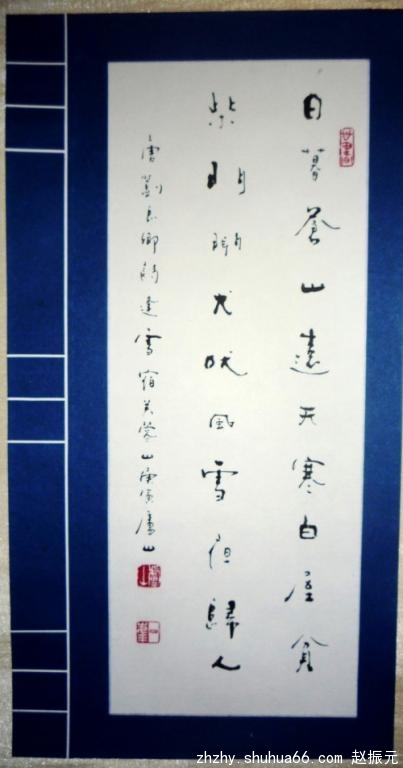 日暮蒼山遠天寒白屋貧
柴門聞犬吠風雪夜歸人
唐劉長卿詩逢雪宿芙蓉山庚寅廬山
zhzhy.shuhua66.com 赵振元